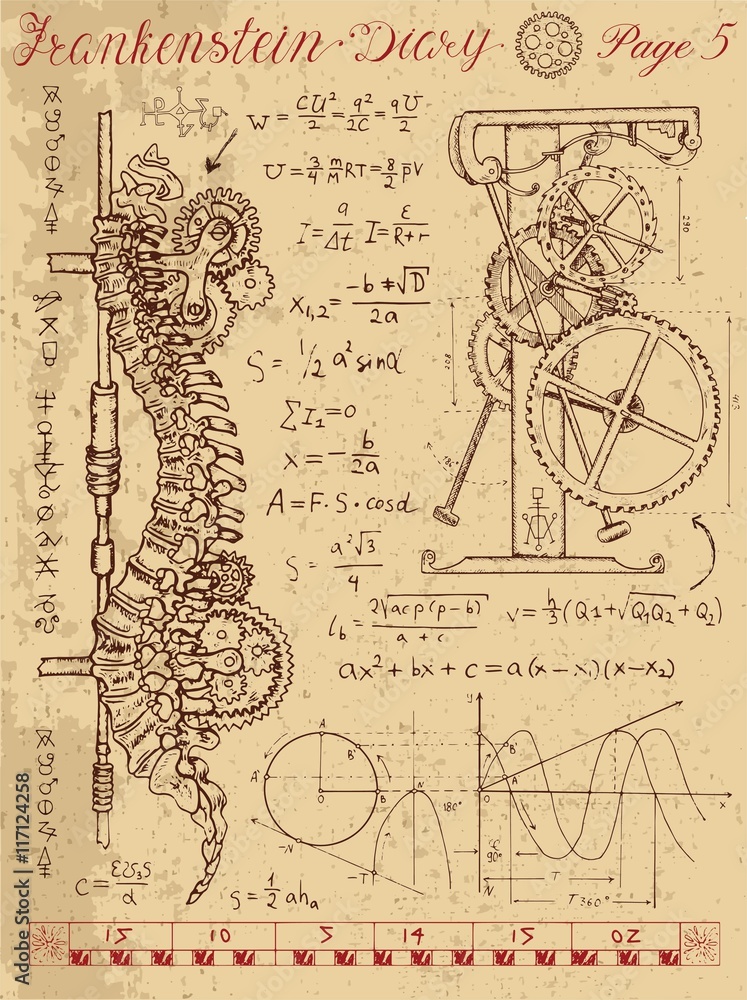 Frankenstein Diary Page 5
W = CU²/2 = q²/2C = qU/2
U = 3/4 m/M RT = 8/2 p̄V
I = q/Δt I = ε/R+r
x₁,₂ = -b ±√D / 2a
S = 1/2 a² sinα
∑I₁=0
x = - b/2a
A = F·S·cosα
S = a²√3 / 4
l_b = 2√acp(p-b) / a+c
V = h/3 (Q1+√Q₁Q₂+Q₂)
ax²+bx+c=a(x-x₁)(x-x₂)
290
208
413
180°
A
B'
A'
O
B
N
-N
-T
180°
y
B'
A
O
x
90°
N
T
T 360°
S = 1/2 ah_a
15 10 5 14 15 02
Adobe Stock | #117124258
Adobe Stock